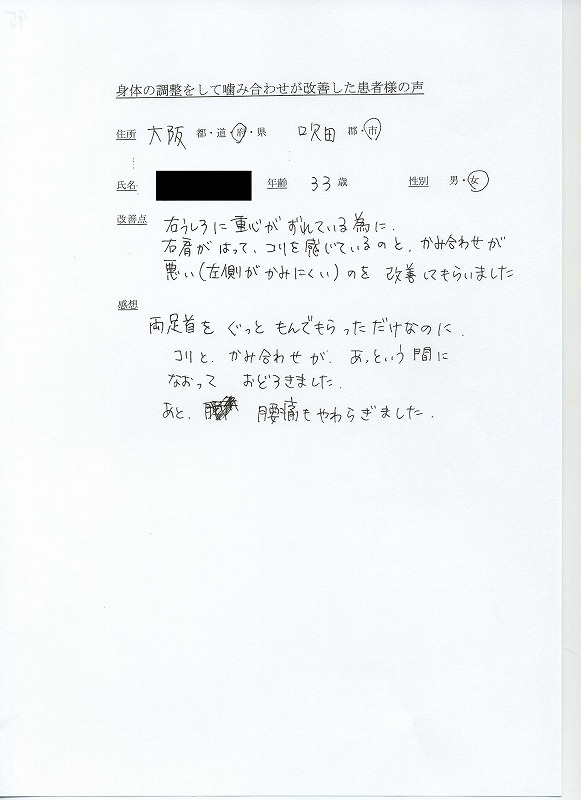 身体の調整をして噛み合わせが改善した患者様の声
住所 大阪 都・道・府・県 吹田 郡・市
氏名 年齢 33歳 性別 男・女
改善点 右うしろに重心がずれている為に、
右肩がはって、コリを感じているのと、かみ合わせが
悪い(左側がかみにくい)のを 改善してもらいました
感想
両足首を ぐっと もんでもらっただけなのに、
コリと、かみ合わせが、あっという間に
なおって おどろきました。
あと、腰痛もやわらぎました。